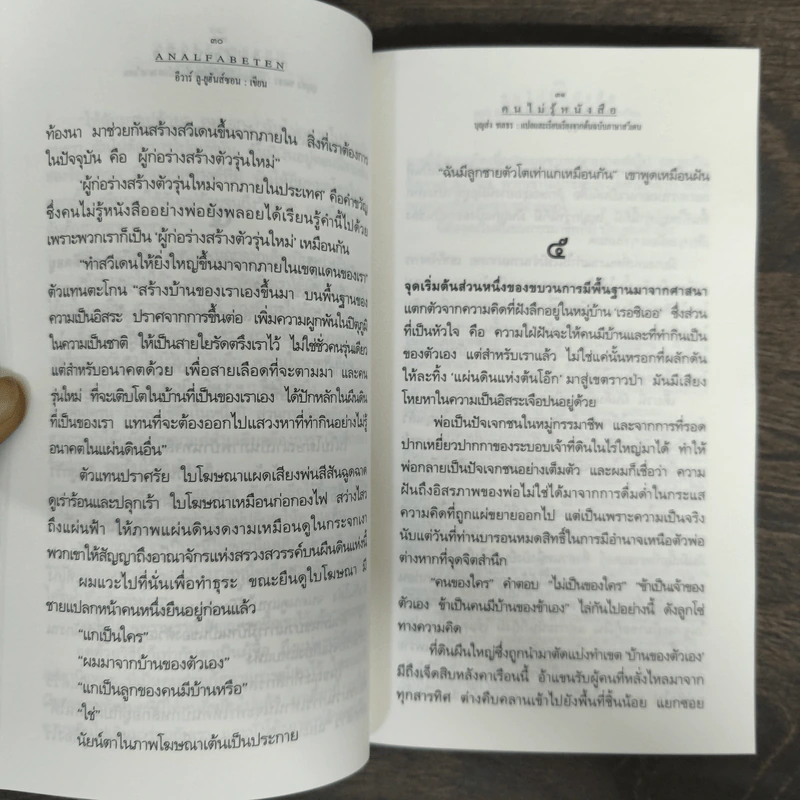 ๓๐
ANALFABETEN
อีวาร์ ลู-ยูฮันส์ซอน : เขียน
ท้องนา มาช่วยกันสร้างสวีเดนขึ้นจากภายใน สิ่งที่เราต้องการ
ในปัจจุบัน คือ ผู้ก่อร่างสร้างตัวรุ่นใหม่”
‘ผู้ก่อร่างสร้างตัวรุ่นใหม่จากภายในประเทศ’ คือคำขวัญ
ซึ่งคนไม่รู้หนังสืออย่างพ่อยังพลอยได้เรียนรู้คำนี้ไปด้วย
เพราะพวกเราก็เป็น ‘ผู้ก่อร่างสร้างตัวรุ่นใหม่’ เหมือนกัน
“ทำสวีเดนให้ยิ่งใหญ่ขึ้นมาจากภายในเขตแดนของเรา”
ตัวแทนตะโกน “สร้างบ้านของเราเองขึ้นมา บนพื้นฐานของ
ความเป็นอิสระ ปราศจากการขึ้นต่อ เพิ่มความผูกพันในปิตุภูมิ
ในความเป็นชาติ ให้เป็นสายใยรัดตรึงเราไว้ ไม่ใช่ชั่วคนรุ่นเดียว
แต่สำหรับอนาคตด้วย เพื่อสายเลือดที่จะตามมา และคน
รุ่นใหม่ ที่จะเติบโตในบ้านที่เป็นของเราเอง ได้ปักหลักในผืนดิน
ที่เป็นของเรา แทนที่จะต้องออกไปแสวงหาที่ทำกินอย่างไม่รู้
อนาคตในแผ่นดินอื่น”
ตัวแทนปราศรัย ใบโฆษณาแผดเสียงพ่นสีสันฉูดฉาด
ดูเร่าร้อนและปลุกเร้า ใบโฆษณาเหมือนก่อกองไฟ สว่างไสว
ถึงแผ่นฟ้า ให้ภาพแผ่นดินงดงามเหมือนดูในกระจกเงา
พวกเขาให้สัญญาถึงอาณาจักรแห่งสรวงสวรรค์บนผืนดินแห่งนี้
ผมแวะไปที่นั่นเพื่อทำธุระ ขณะยืนดูใบโฆษณา มี
ชายแปลกหน้าคนหนึ่งยืนอยู่ก่อนแล้ว
“แกเป็นใคร”
“ผมมาจากบ้านของตัวเอง”
“แกเป็นลูกของคนมีบ้านหรือ”
“ใช่”
นัยน์ตาในภาพโฆษณาเต้นเป็นประกาย
๓๑
คนไม่รู้หนังสือ
บุญส่ง ชเลธร : แปลและเรียบเรียงจากต้นฉบับภาษาสวีเดน
“ฉันมีลูกชายตัวโตเท่าแกเหมือนกัน” เขาพูดเหมือนฝัน
๕
จุดเริ่มต้นส่วนหนึ่งของขบวนการมีพื้นฐานมาจากศาสนา
แตกตัวจากความคิดที่ฝังลึกอยู่ในหมู่บ้าน ‘เรอซิเออ’ ซึ่งส่วน
ที่เป็นหัวใจ คือ ความใฝ่ฝันจะให้คนมีบ้านและที่ทำกินเป็น
ของตัวเอง แต่สำหรับเราแล้ว ไม่ใช่แค่นั้นหรอกที่ผลักดัน
ให้ละทิ้ง ‘แผ่นดินแห่งต้นโอ๊ก’ มาสู่เขตราวป่า มันมีเสียง
โหยหาในความเป็นอิสระเจือปนอยู่ด้วย
พ่อเป็นปัจเจกชนในหมู่กรรมาชีพ และจากการที่รอด
ปากเหยี่ยวปากกาของระบอบเจ้าที่ดินไร่ใหญ่มาได้ ทำให้
พ่อกลายเป็นปัจเจกชนอย่างเต็มตัว และผมก็เชื่อว่า ความ
ฝันถึงอิสรภาพของพ่อไม่ใช่ได้มาจากการดื่มด่ำในกระแส
ความคิดที่ถูกแผ่ขยายออกไป แต่เป็นเพราะความเป็นจริง
นับแต่วันที่ท่านบารอนหมดสิทธิ์ในการมีอำนาจเหนือตัวพ่อ
ต่างหากที่จุดจิตสำนึก
“คนของใคร” คำตอบ “ไม่เป็นของใคร” “ข้าเป็นเจ้าของ
ตัวเอง ข้าเป็นคนมีบ้านของข้าเอง” ไล่กันไปอย่างนี้ ดังลูกโซ่
ทางความคิด
ที่ดินผืนใหญ่ซึ่งถูกนำมาตัดแบ่งทำเขต ‘บ้านของตัวเอง’
มีถึงเจ็ดสิบหลังคาเรือนนี้ อ้าแขนรับผู้คนที่หลั่งไหลมาจาก
ทุกสารทิศ ต่างคืบคลานเข้าไปยังพื้นที่ชิ้นน้อย แยกซอย